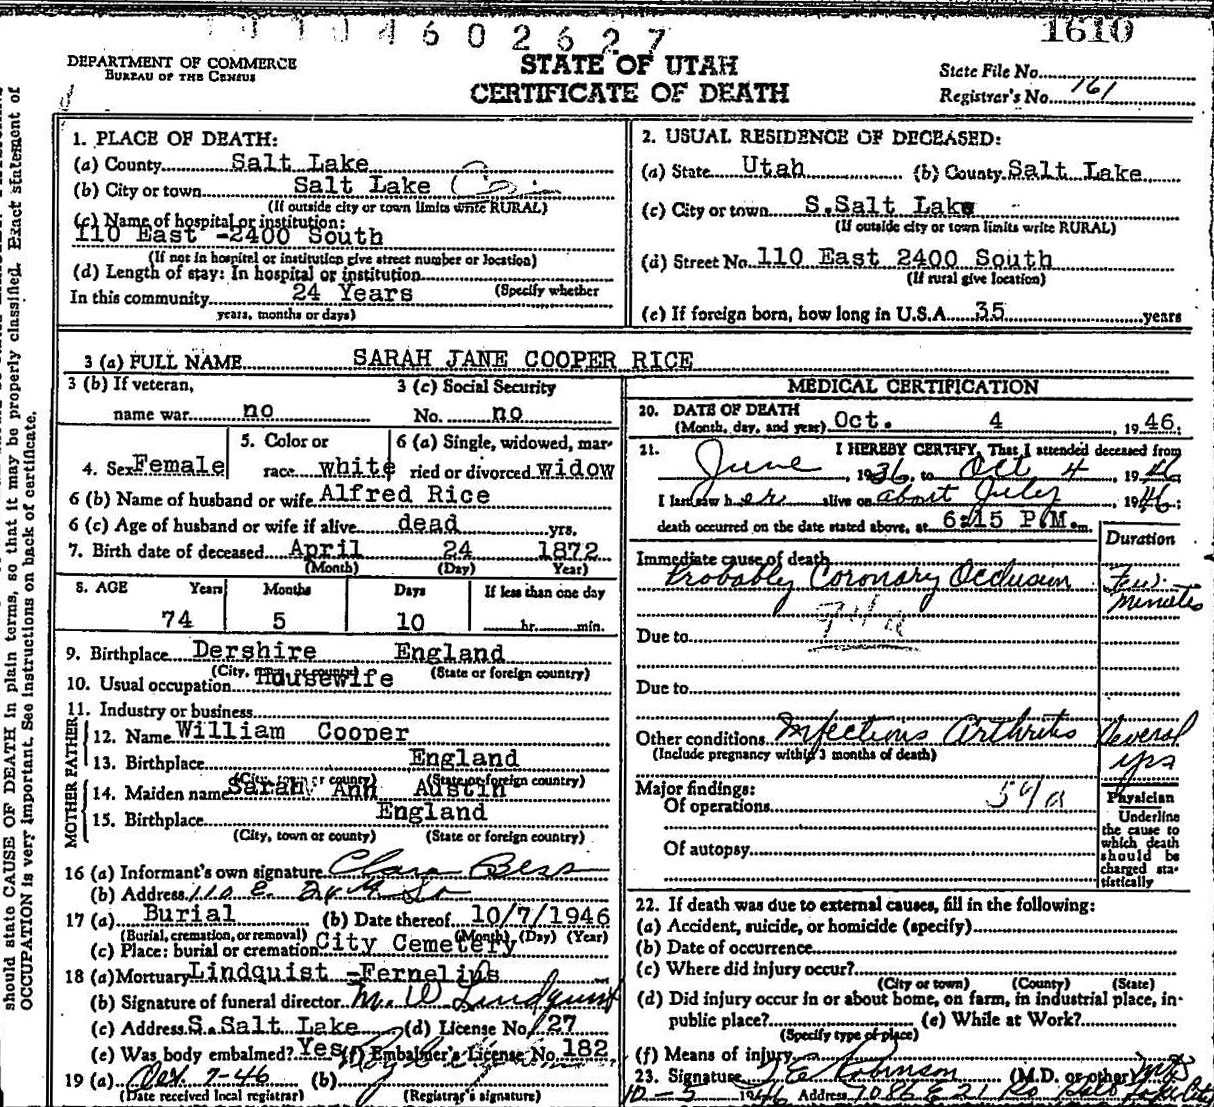 1 1 0 4 6 0 2 6 2 7
1610
DEPARTMENT OF COMMERCE
BUREAU OF THE CENSUS
STATE OF UTAH
CERTIFICATE OF DEATH
State File No.
Registrar's No. 161
should state CAUSE OF DEATH in plain terms, so that it may be properly classified. Exact statement of
OCCUPATION is very important. See instructions on back of certificate.
1. PLACE OF DEATH:
(a) County Salt Lake
(b) City or town Salt Lake
(If outside city or town limits write RURAL)
(c) Name of hospital or institution:
110 East -2400 South
(If not in hospital or institution give street number or location)
(d) Length of stay: In hospital or institution
(Specify whether
In this community 24 Years
years, months or days)
2. USUAL RESIDENCE OF DECEASED:
(a) State Utah (b) County Salt Lake
(c) City or town S.Salt Lake
(If outside city or town limits write RURAL)
(d) Street No. 110 East 2400 South
(If rural give location)
(e) If foreign born, how long in U.S.A. 35 years
3 (a) FULL NAME SARAH JANE COOPER RICE
3 (b) If veteran,
name war no
3 (c) Social Security
No. no
4. Sex Female
5. Color or
race white
6 (a) Single, widowed, mar-
ried or divorced widow
6 (b) Name of husband or wife Alfred Rice
6 (c) Age of husband or wife if alive dead yrs.
7. Birth date of deceased April 24 1872
(Month) (Day) Year)
8. AGE Years Months Days If less than one day
74 5 10 hr. min.
9. Birthplace Dershire England
(City, town or county) (State or foreign country)
10. Usual occupation Housewife
11. Industry or business
FATHER
12. Name William Cooper
13. Birthplace England
(City, town or county) (State or foreign country)
MOTHER
14. Maiden name Sarah Ann Austin
15. Birthplace England
(City, town or county) (State or foreign country)
16 (a) Informant's own signature Clara Bess
(b) Address 110 E. 24th So
17 (a) Burial (b) Date thereof 10/7/1946
(Burial, cremation, or removal) (Month) (Day) (Year)
(c) Place: burial or cremation City Cemetery
18 (a) Mortuary Lindquist -Fernelius
(b) Signature of funeral director M. W Lindquist
(c) Address S.Salt Lake (d) License No. 127
(e) Was body embalmed? Yes (f) Embalmer's License No. 182
19 (a) Oct. 7-46 (b)
(Date received local registrar) (Registrar's signature)
MEDICAL CERTIFICATION
20. DATE OF DEATH
(Month, day, and year) Oct. 4, 1946;
21. I HEREBY CERTIFY, That I attended deceased from
June, 1936, to Oct 4, 1946
I last saw her alive on about July, 1946;
death occurred on the date stated above, at 6:15 P.M. m.
Duration
Immediate cause of death
Probably Coronary Occlusion Few minutes
94a
Due to
Due to
Other conditions Infectious Arthritis Several yrs
(Include pregnancy within 3 months of death)
Major findings:
Of operations 59a
Of autopsy
Physician
Underline
the cause to
which death
should be
charged sta-
tistically
22. If death was due to external causes, fill in the following:
(a) Accident, suicide, or homicide (specify)
(b) Date of occurrence
(c) Where did injury occur?
(City or town) (County) (State)
(d) Did injury occur in or about home, on farm, in industrial place, in-
public place? (e) While at Work?
(Specify type of place)
(f) Means of injury
23. Signature Robinson (M.D. or other)
10-5 1946 Address